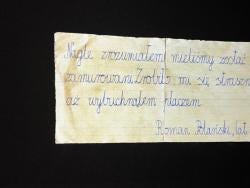 Nagle zrozumiałem mieliśmy zostać
zamurowani. Zrobiło mi się straszn
aż wybuchnąłem płaczem
Roman Polański, lat